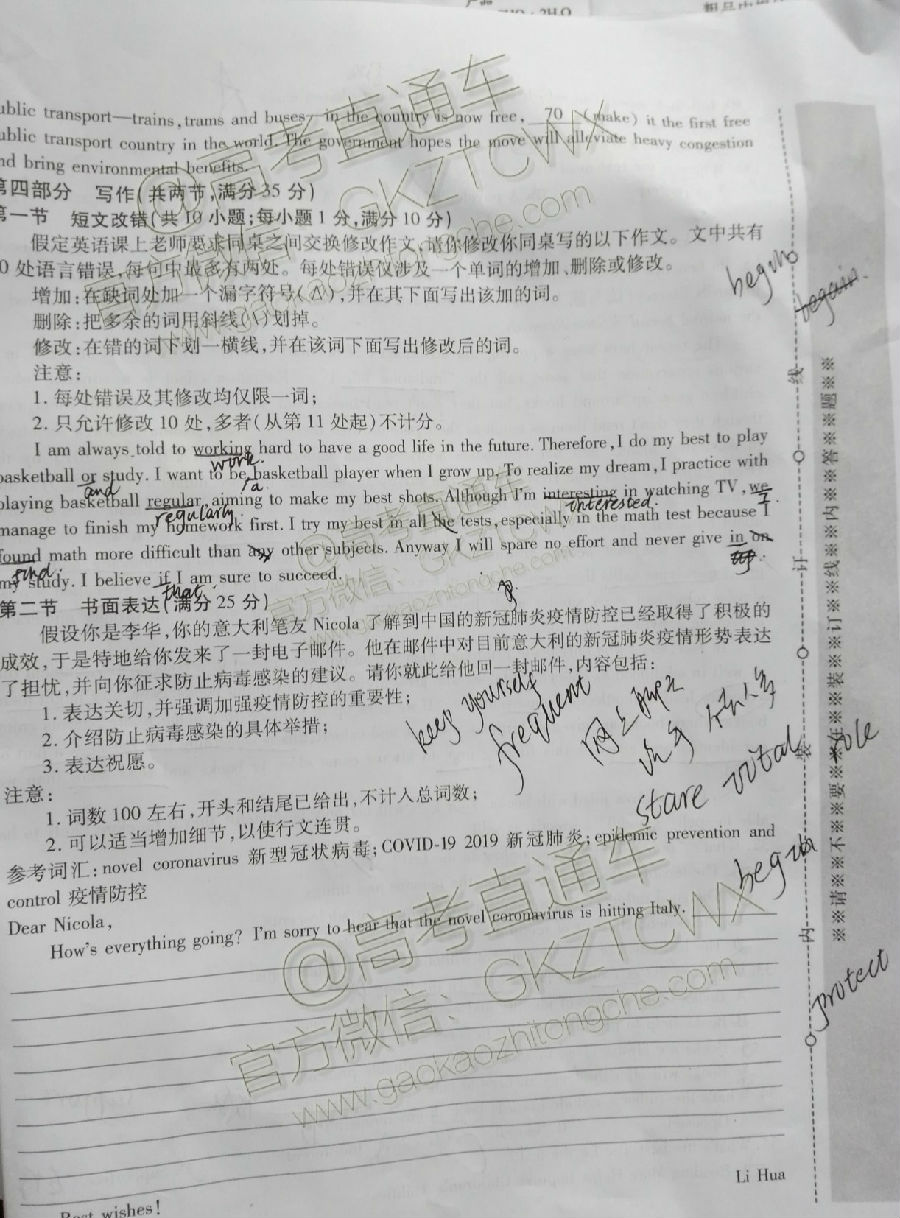 2H_2O
ublic transport—trains, trams and buses, in the country is now free, 70 (make) it the first free
ublic transport country in the world. The government hopes the move will alleviate heavy congestion
nd bring environmental benefits.
第四部分 写作(共两节,满分35分)
第一节 短文改错(共10小题;每小题1分,满分10分)
假定英语课上老师要求同桌之间交换修改作文,请你修改你同桌写的以下作文。文中共有
0处语言错误,每句中最多有两处。每处错误仅涉及一个单词的增加、删除或修改。
增加:在缺词处加一个漏字符号(∧),并在其下面写出该加的词。
删除:把多余的词用斜线(\)划掉。
修改:在错的词下划一横线,并在该词下面写出修改后的词。
注意:
1. 每处错误及其修改均仅限一词;
2. 只允许修改10处,多者(从第11处起)不计分。
begin
begain
I am always told to working hard to have a good life in the future. Therefore, I do my best to play
work
basketball or study. I want to be basketball player when I grow up. To realize my dream, I practice with
and a
playing basketball regular, aiming to make my best shots. Although I'm interesting in watching TV, we
regularly interested I
manage to finish my homework first. I try my best in all the tests, especially in the math test because I
found math more difficult than any other subjects. Anyway I will spare no effort and never give in on
find
my study. I believe if I am sure to succeed.
that
第二节 书面表达(满分25分)
假设你是李华,你的意大利笔友Nicola了解到中国的新冠肺炎疫情防控已经取得了积极的
成效,于是特地给你发来了一封电子邮件。他在邮件中对目前意大利的新冠肺炎疫情形势表达
了担忧,并向你征求防止病毒感染的建议。请你就此给他回一封邮件,内容包括:
1. 表达关切,并强调加强疫情防控的重要性;
2. 介绍防止病毒感染的具体举措;
3. 表达祝愿。
keep yourself
frequent
vital
注意:
1. 词数100左右,开头和结尾已给出,不计入总词数;
2. 可以适当增加细节,以使行文连贯。
参考词汇:novel coronavirus 新型冠状病毒;COVID-19 2019新冠肺炎;epidemic prevention and
control 疫情防控
begin
Dear Nicola,
How's everything going? I'm sorry to hear that the novel coronavirus is hitting Italy.
protect
Li Hua
Best wishes!
线
订
装
内
※※请※※不※※要※※在※※装※※订※※线※※内※※答※※题※※
@高考直通车
官方微信:GKZTCWX
www.gaokaozhitongche.com
@高考直通车
官方微信:GKZTCWX
www.gaokaozhitongche.com